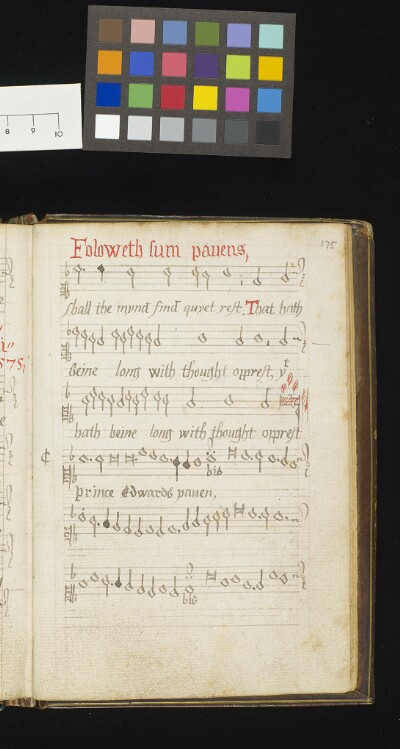 8 9 10
175
Foloweth sum pauens,
shall the mynd find quyet rest. That hath
Beine long with thought opprest, yt
hath beine long with thought opprest
bis
Prince Edwards pauen,
bis
575,